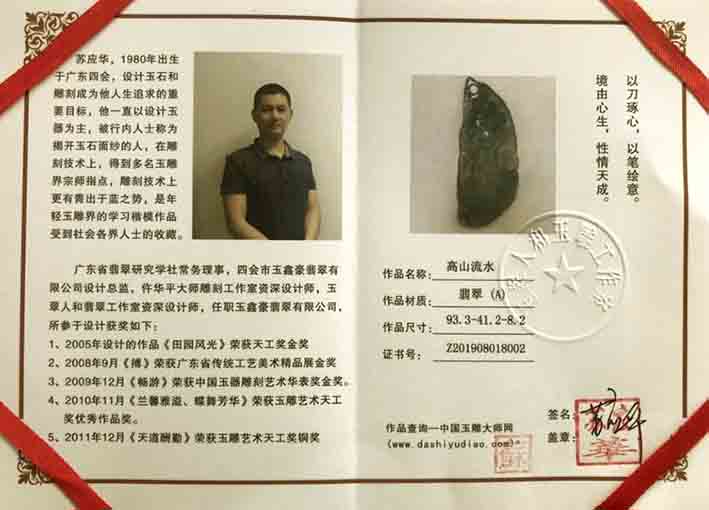 苏应华，1980年出生
于广东四会，设计玉石和
雕刻成为他人生追求的重
要目标，他一直以设计玉
器为主，被行内人士称为
揭开玉石面纱的人，在雕
刻技术上，得到多名玉雕
界宗师指点，雕刻技术上
更有青出于蓝之势，是年
轻玉雕界的学习楷模作品
受到社会各界人士的收藏。
广东省翡翠研究学社常务理事，四会市玉鑫豪翡翠有
限公司设计总监，仵华平大师雕刻工作室资深设计师，玉
翠人和翡翠工作室资深设计师，任职玉鑫豪翡翠有限公司，
所参于设计获奖如下：
1、2005年设计的作品《田园风光》荣获天工奖金奖
2、2008年9月《搏》荣获广东省传统工艺美术精品展金奖
3、2009年12月《畅游》荣获中国玉器雕刻艺术华表奖金奖。
4、2010年11月《兰馨雅溢、蝶舞芳华》荣获玉雕艺术天工
奖优秀作品奖。
5、2011年12月《天道酬勤》荣获玉雕艺术天工奖铜奖
以刀琢心，以笔绘意。
境由心生，性情天成。
作品名称：高山流水
作品材质：翡翠（A）
作品尺寸：93.3-41.2-8.2
证书号：Z201908018002
作品查询—中国玉雕大师网
（www.dashiyudiao.com）
签名：
盖章：